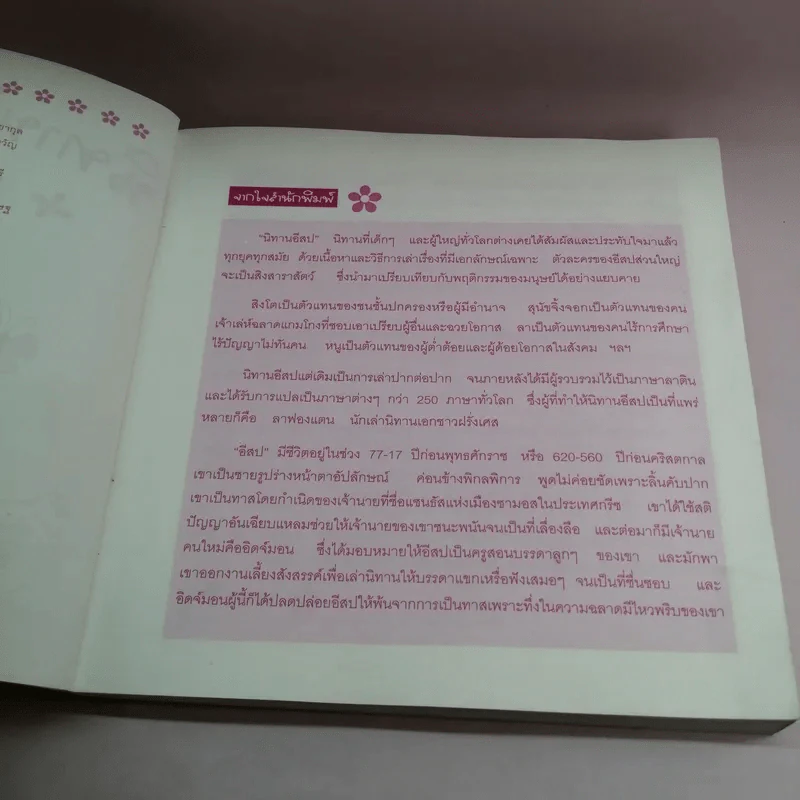 จากใจสำนักพิมพ์
"นิทานอีสป" นิทานที่เด็กๆ และผู้ใหญ่ทั่วโลกต่างเคยได้สัมผัสและประทับใจมาแล้ว
ทุกยุคทุกสมัย ด้วยเนื้อหาและวิธีการเล่าเรื่องที่มีเอกลักษณ์เฉพาะ ตัวละครของอีสปส่วนใหญ่
จะเป็นสิงสาราสัตว์ ซึ่งนำมาเปรียบเทียบกับพฤติกรรมของมนุษย์ได้อย่างแยบคาย
สิงโตเป็นตัวแทนของชนชั้นปกครองหรือผู้มีอำนาจ สุนัขจิ้งจอกเป็นตัวแทนของคน
เจ้าเล่ห์ฉลาดแกมโกงที่ชอบเอาเปรียบผู้อื่นและฉวยโอกาส ลาเป็นตัวแทนของคนไร้การศึกษา
ไร้ปัญญาไม่ทันคน หนูเป็นตัวแทนของผู้ต่ำต้อยและผู้ด้อยโอกาสในสังคม ฯลฯ
นิทานอีสปแต่เดิมเป็นการเล่าปากต่อปาก จนภายหลังได้มีผู้รวบรวมไว้เป็นภาษาลาติน
และได้รับการแปลเป็นภาษาต่างๆ กว่า 250 ภาษาทั่วโลก ซึ่งผู้ที่ทำให้นิทานอีสปเป็นที่แพร่
หลายก็คือ ลาฟองแตน นักเล่านิทานเอกชาวฝรั่งเศส
"อีสป" มีชีวิตอยู่ในช่วง 77-17 ปีก่อนพุทธศักราช หรือ 620-560 ปีก่อนคริสตกาล
เขาเป็นชายรูปร่างหน้าตาอัปลักษณ์ ค่อนข้างพิกลพิการ พูดไม่ค่อยชัดเพราะลิ้นคับปาก
เขาเป็นทาสโดยกำเนิดของเจ้านายที่ชื่อแซนธัสแห่งเมืองซามอสในประเทศกรีซ เขาได้ใช้สติ
ปัญญาอันเฉียบแหลมช่วยให้เจ้านายของเขาชนะพนันจนเป็นที่เลื่องลือ และต่อมาก็มีเจ้านาย
คนใหม่คืออิดจ์มอน ซึ่งได้มอบหมายให้อีสปเป็นครูสอนบรรดาลูกๆ ของเขา และมักพา
เขาออกงานเลี้ยงสังสรรค์เพื่อเล่านิทานให้บรรดาแขกเหรื่อฟังเสมอๆ จนเป็นที่ชื่นชอบ และ
อิดจ์มอนผู้นี้ก็ได้ปลดปล่อยอีสปให้พ้นจากการเป็นทาสเพราะทึ่งในความฉลาดมีไหวพริบของเขา